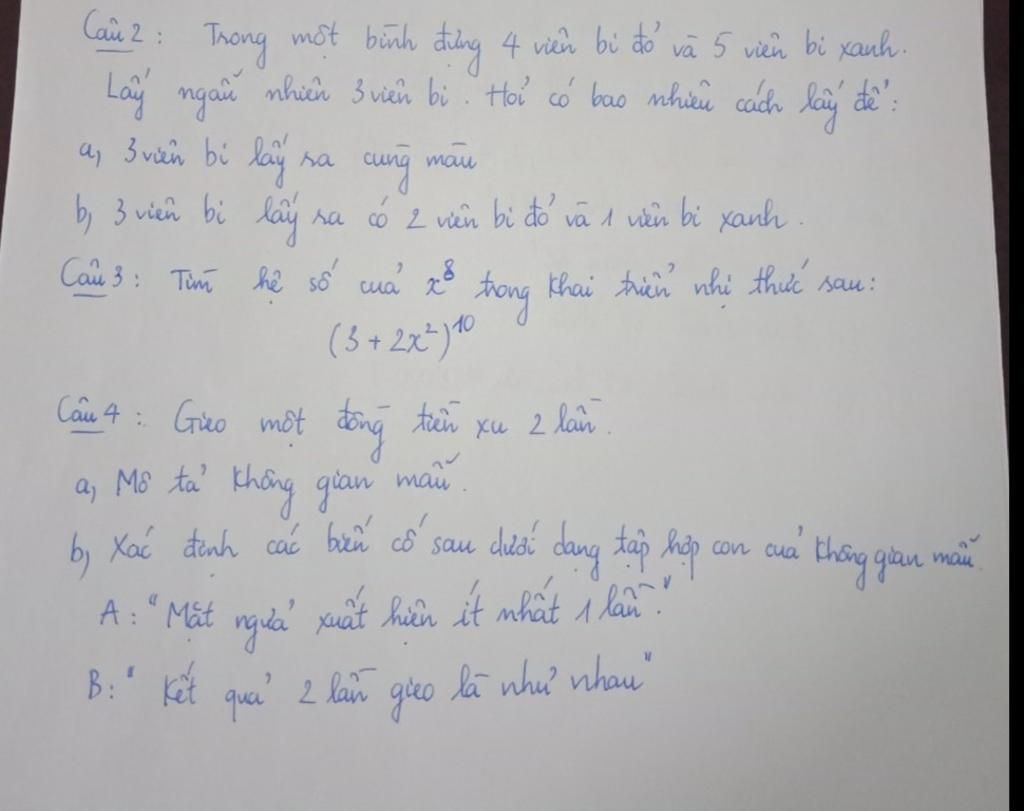 Câu 2 : Trong một bình đựng 4 viên bi đỏ và 5 viên bi xanh.
Lấy ngẫu nhiên 3 viên bi. Hỏi có bao nhiêu cách lấy để :
a, 3 viên bi lấy ra cùng màu
b, 3 viên bi lấy ra có 2 viên bi đỏ và 1 viên bi xanh.
Câu 3 : Tìm hệ số của x⁸ trong khai triển nhị thức sau :
(3 + 2x²)¹⁰
Câu 4 : Gieo một đồng tiền xu 2 lần.
a, Mô tả không gian mẫu.
b, Xác định các biến cố sau dưới dạng tập hợp con của không gian mẫu.
A : "Mặt ngửa xuất hiện ít nhất 1 lần."
B : "Kết quả 2 lần gieo là như nhau"